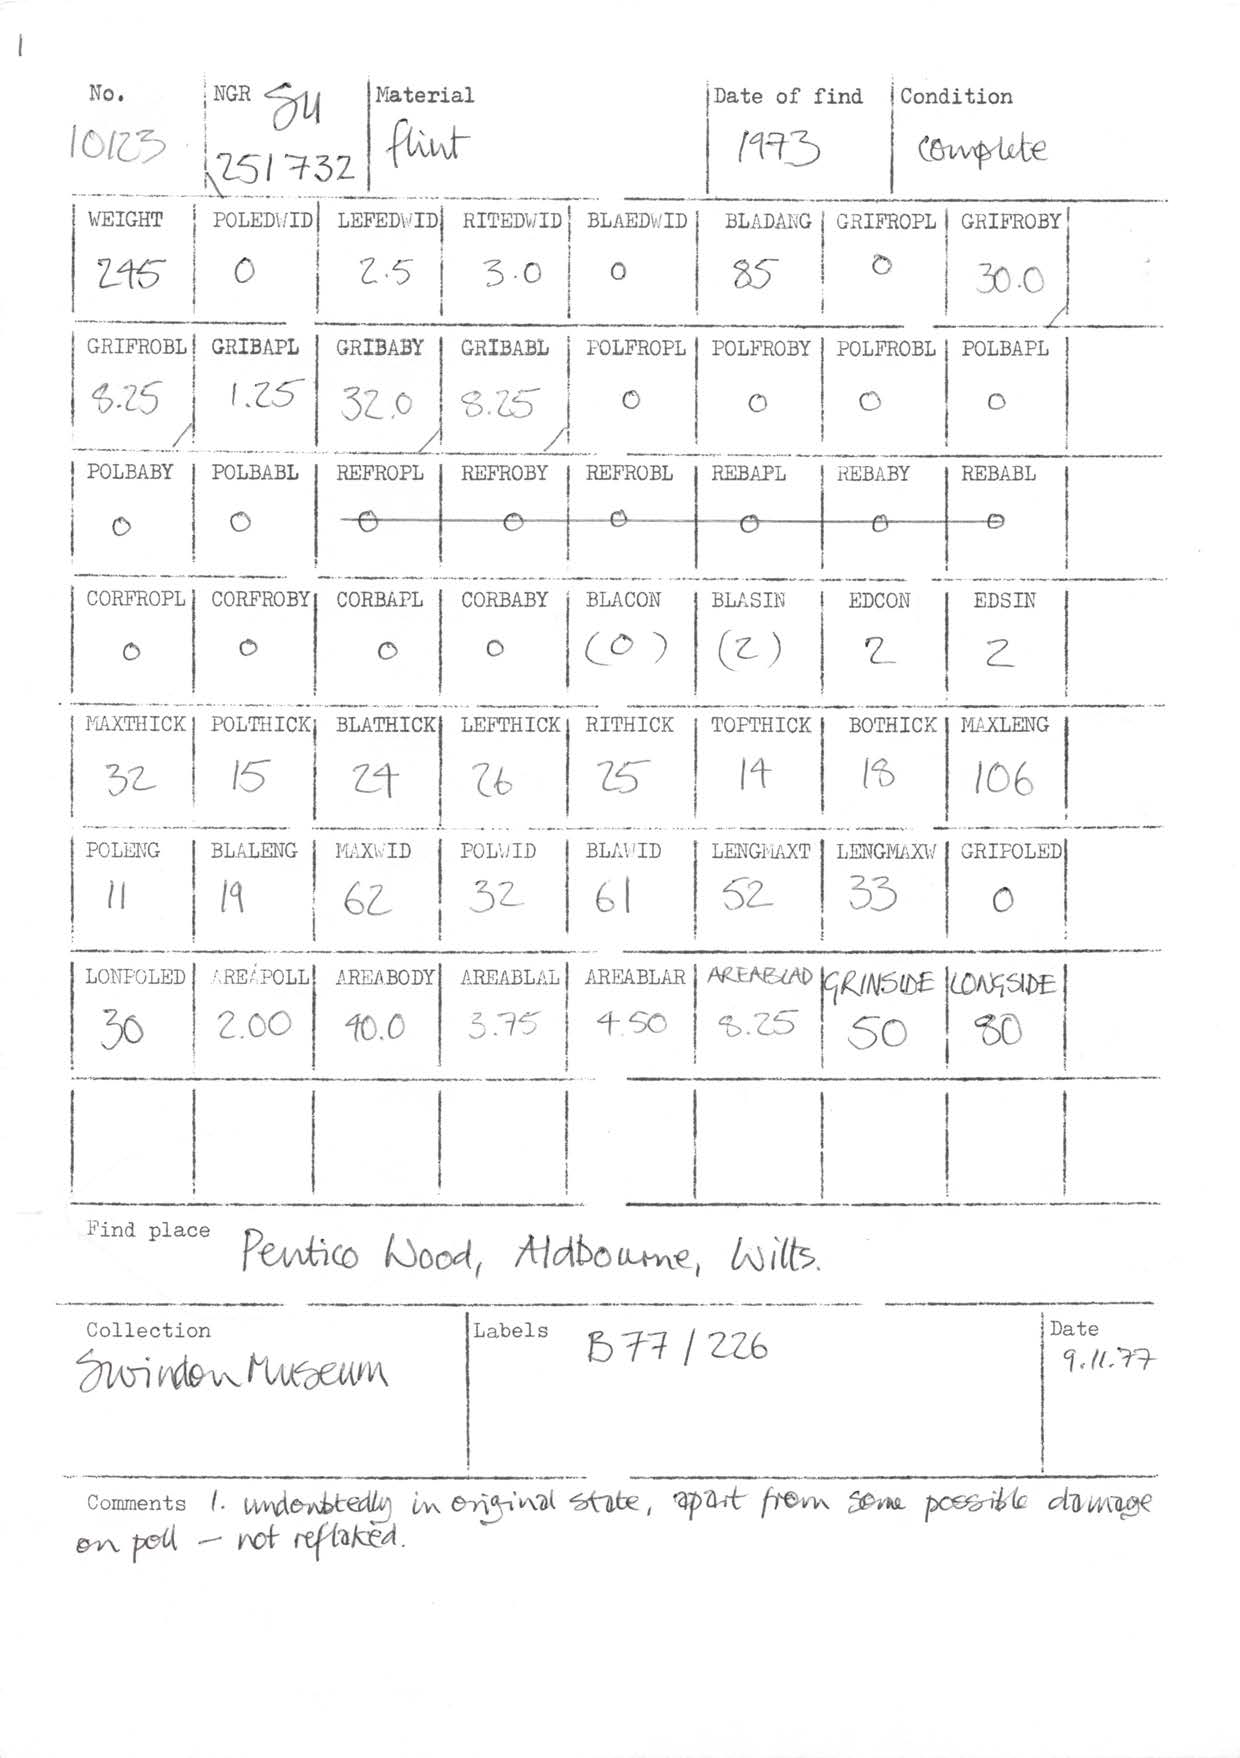 1
No. NGR SU Material Date of find Condition
10123 251732 flint 1973 complete
WEIGHT POLEDWID LEFEDWID RITEDWID BLAEDWID BLADANG GRIFROPL GRIFROBY
245 0 2.5 3.0 0 85 0 30.0
GRIFROBL GRIBAPL GRIBABY GRIBABL POLFROPL POLFROBY POLFROBL POLBAPL
8.25 1.25 32.0 8.25 0 0 0 0
POLBABY POLBABL REFROPL REFROBY REFROBL REBAPL REBABY REBABL
0 0 0 0 0 0 0 0
CORFROPL CORFROBY CORBAPL CORBABY BLACON BLASIN EDCON EDSIN
0 0 0 0 (0) (2) 2 2
MAXTHICK POLTHICK BLATHICK LEFTHICK RITHICK TOPTHICK BOTHICK MAXLENG
32 15 24 26 25 14 18 106
POLENG BLALENG MAXWID POLWID BLAWID LENGMAXT LENGMAXW GRIPOLED
11 19 62 32 61 52 33 0
LONPOLED AREAPOLL AREABODY AREABLAL AREABLAR AREABLAD GRINSIDE LONGSIDE
30 2.00 40.0 3.75 4.50 8.25 50 80
Find place Pentico Wood, Aldbourne, Wilts.
Collection Labels B77/226 Date
Swindon Museum 9.11.77
Comments 1. undoubtedly in original state, apart from some possible damage
on poll – not reflaked.